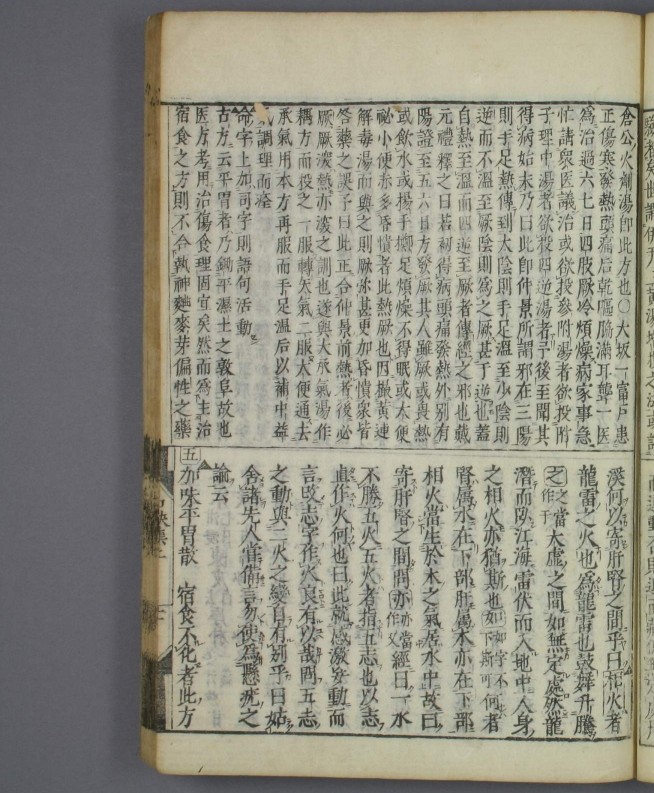 倉公火劑湯即此方也〇大坂一富戸患
正傷寒發熱頭痛后就嘔脇滿耳聾一医
為治過六七日四肢厥冷煩燥病家事急
忙請衆医議治或欲投參附湯者或欲投附
子理中湯者欲投四逆湯者予後至問其
得病始末乃曰此即仲景所謂邪在三陽
則手足熱傳到太陰則手足温至少陰則
逆而不温至厥陰則為之厥甚于逆也蓋
自熱至温而四逆至厥者傳經之邪也戴
元禮釋之曰若初得病頭痛發熱外別有
陽證至五六日方發厥其人雖厥或畏熱
或飲水或楊手擲足煩燥不得眠或大便
祕小便赤多昏憒者此熱厥也因撮黄連
解毒湯而與之則厥弥甚更加昏憒衆皆
答藥之誤予曰此正合仲景前熱者後必
厥厥深熱亦深之訓也遂與大承氣湯作
耦方而投之一服轉矢氣二服大便通去
承氣用本方再服而手足温后以補中益
氣調理而痊
命字上加司字則語句活動
古方云平胃者乃鋤平濕土之敦阜故也
医方考用治傷食理固宜矣然而為主治
宿食之方則不合執神麯麥芽偏性之藥
漢何以寄肝腎之間乎曰相火者
龍雷之火也為龍雷也鼓舞升騰
之之作于當大虚之間如無定處然龍
潜而防江海雷伏而入地中人身
之相火亦猶斯也如如字不下斯可何者
腎属水在下部肝属木亦在下部
相火當生於木之氣居水中故曰
寄肝腎之間問亦亦當作又經曰一水
不勝五火五火者指五志也以志
直作火何也曰此就感激妄動而
言改志字作火良有以哉問五志
之動與二火之變自有別乎曰姑
舍諸先人嘗備言勿使為懸疣之
論云
五加味平胃散 宿食不化者此方